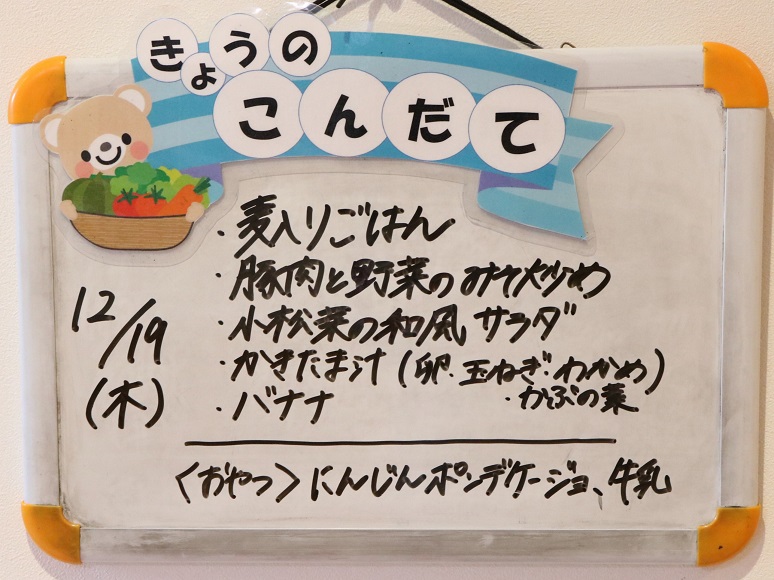 きょうの
こんだて
12/19
(木)
・麦入りごはん
・豚肉と野菜のみそ炒め
・小松菜の和風サラダ
・かきたま汁(卵・玉ねぎ・わかめ)
・かぶの葉
・バナナ
〈おやつ〉にんじんポンデケージョ、牛乳